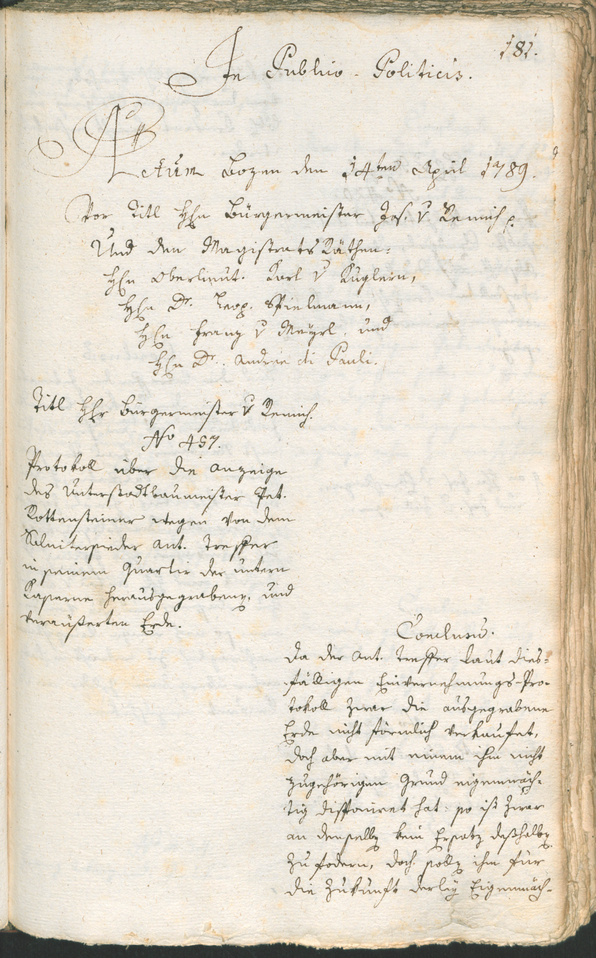 181.
In Publico-Politicis.
Actum Bozen den 14ten April 1789.
Vor Titl Hhn Bürgermeister Jos. v Remich p.
Und den Magistrats Räthen:
Hhn Oberlieut. Karl v Kuglern,
Hhn Dr. Leop. Spielmann,
Hhn Franz v Mayrl. und
Hhn Dr. Andree di Pauli.
Titl Hhr Bürgermeister v Remich.
No 457.
Protokoll über die Anzeige
des Unterstadtbaumeister Pet.
Rottensteiner wegen von dem
Saliterpieder Ant. Treffer
in seinem Quartir der untern
Kaserne herausgegrabenen, und
veraüßerten Erde.
Conclusu.
Da der Ant. Treffer laut dies-
fälligen Einvernehmungs-Pro-
tokoll zwar die ausgegrabene
Erde nicht förmlich verkaufet,
doch aber mit einem ihm nicht
zugehörigen Grund eigenmäch-
tig disponiret hat: so ist zwar
an denselben kein Ersatz deßhalben
zu fodern, doch sollen ihm für
die Zukunft derley Eigenmäch-